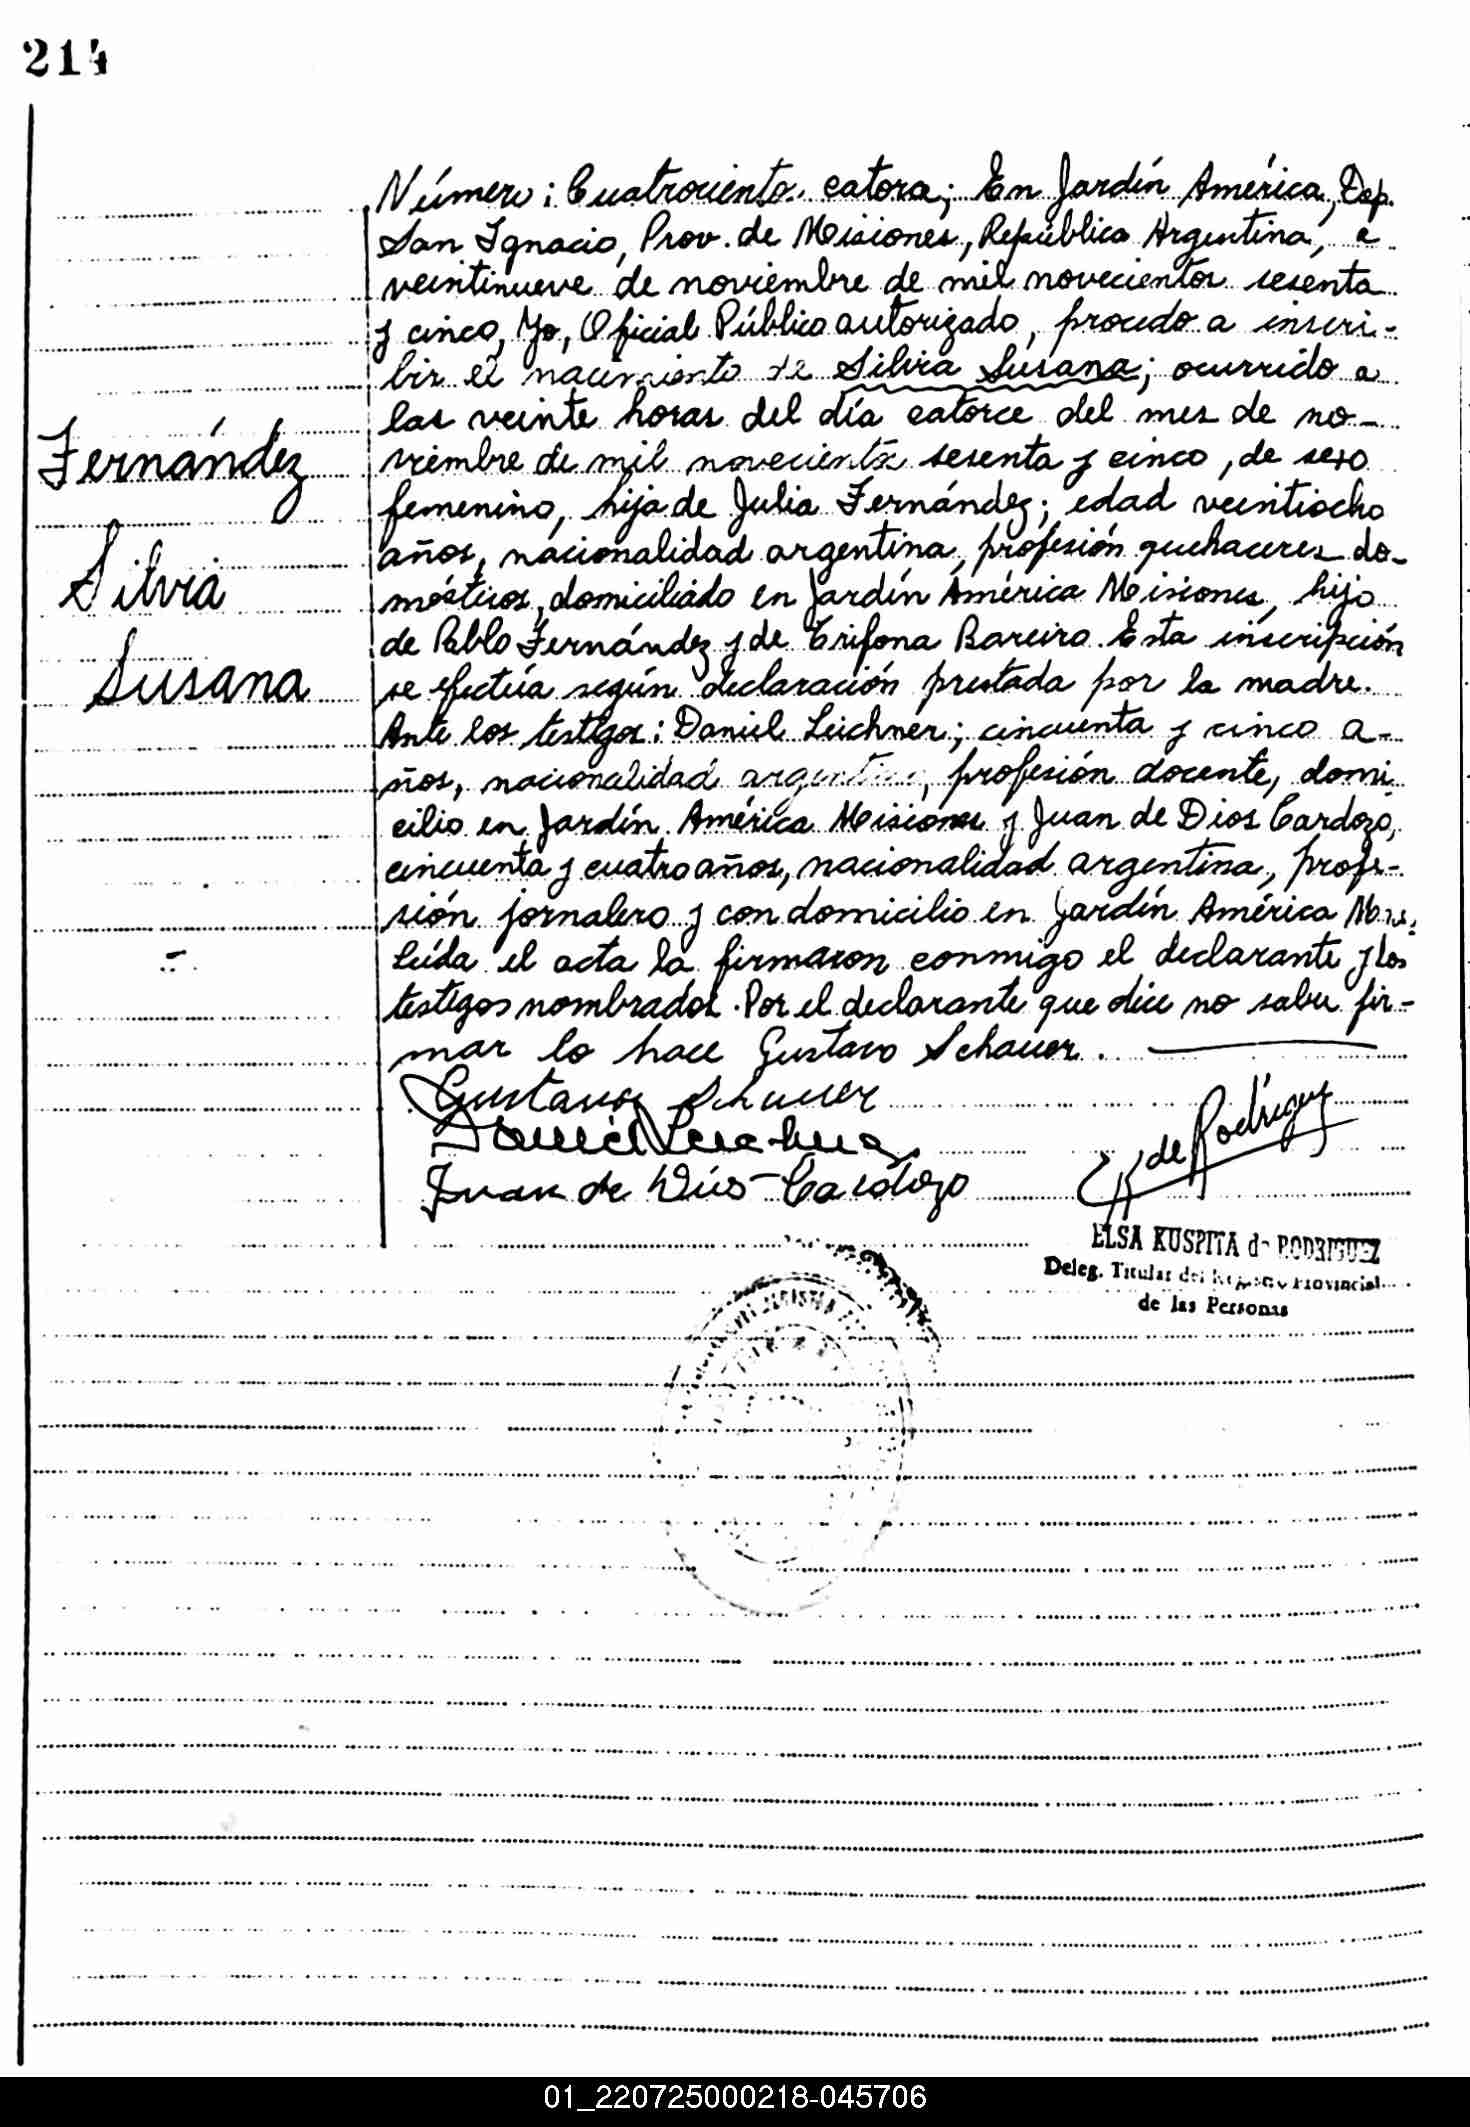 214
Número: Cuatrociento. catorce; En Jardín América, Dep.
San Ignacio, Prov. de Misiones, República Argentina, a
veintinueve de noviembre de mil novecientos sesenta
y cinco, Yo, Oficial Público autorizado, procedo a inscri-
bir el nacimiento de Silvia Susana; ocurrido a
las veinte horas del día catorce del mes de no-
viembre de mil novecientos sesenta y cinco, de sexo
femenino, hija de Julia Fernández; edad veintiocho
años, nacionalidad argentina, profesión quehaceres do-
mésticos, domiciliado en Jardín América Misiones, hijo
de Pablo Fernández y de Trifona Bareiro. Esta inscripción
se efectúa según declaración prestada por la madre.
Ante los testigos: Daniel Leichner; cincuenta y cinco a-
ños, nacionalidad argentina, profesión docente, domi
cilio en Jardín América Misiones y Juan de Dios Cardozo,
cincuenta y cuatro años, nacionalidad argentina, profe-
sión jornalero y con domicilio en Jardín América Mnes.
Leída el acta la firmaron conmigo el declarante y los
testigos nombrados. Por el declarante que dice no saber fir-
mar lo hace Gustavo Schauer.
Fernández
Silvia
Susana
Gustavo Schauer
Daniel Leichner
Juan de Dios Cardozo
de Rodríguez
ELSA KUSPITA de RODRIGUEZ
Deleg. Titular del Registro Provincial
de las Personas
01_220725000218-045706